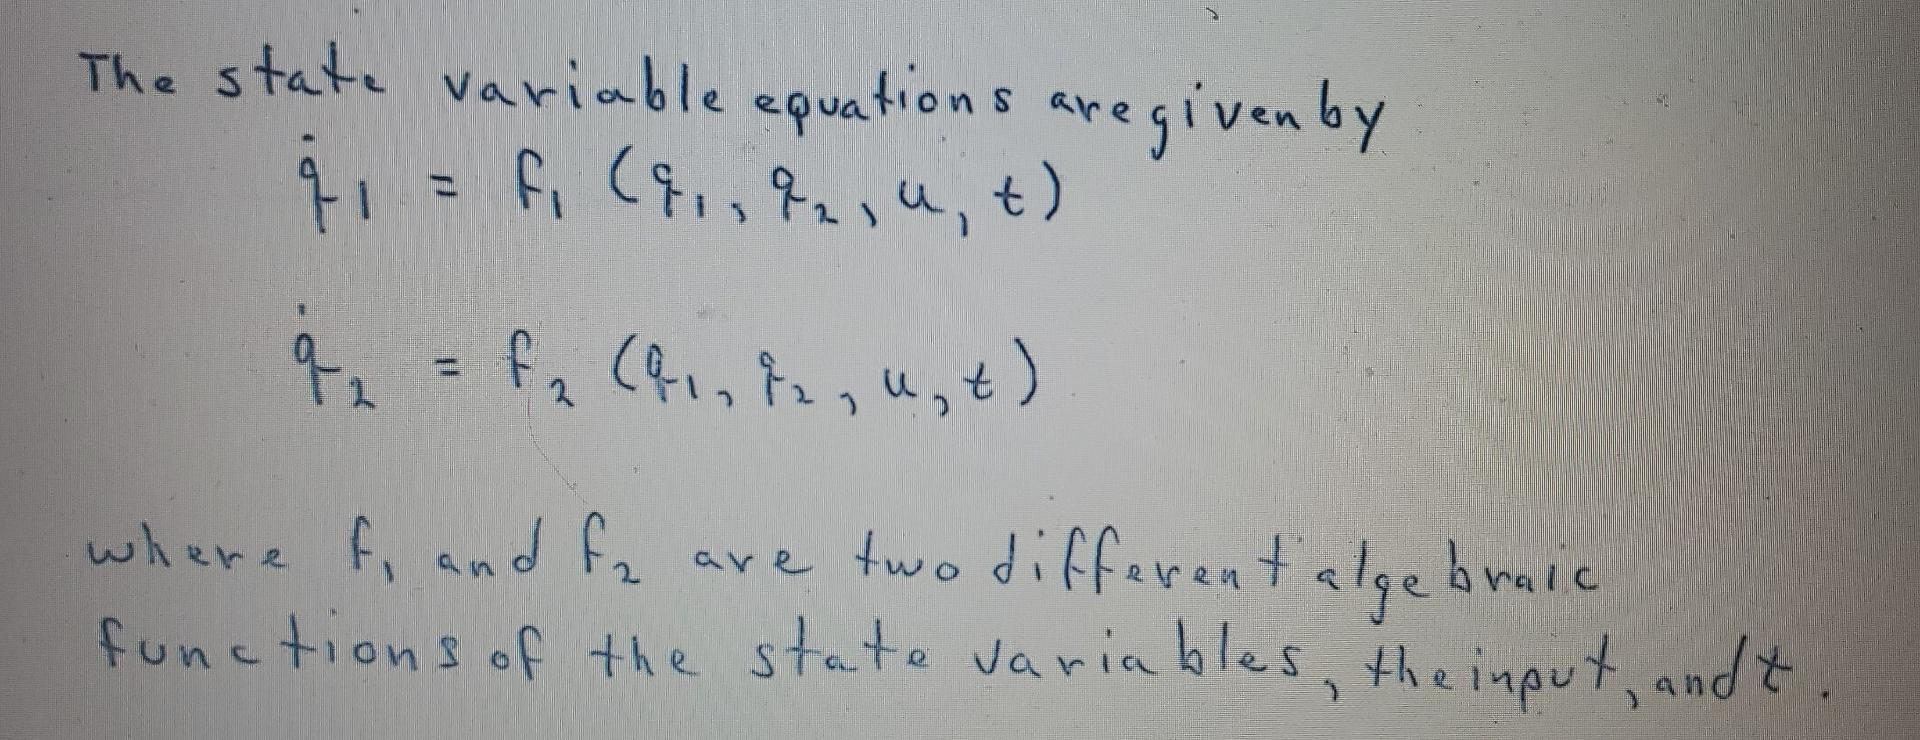 The state variable equations are given by
q̇1 = f1 (q1, q2, u, t)
q̇2 = f2 (q1, q2, u, t)
where f1 and f2 are two different algebraic
functions of the state variables, the input, and t.